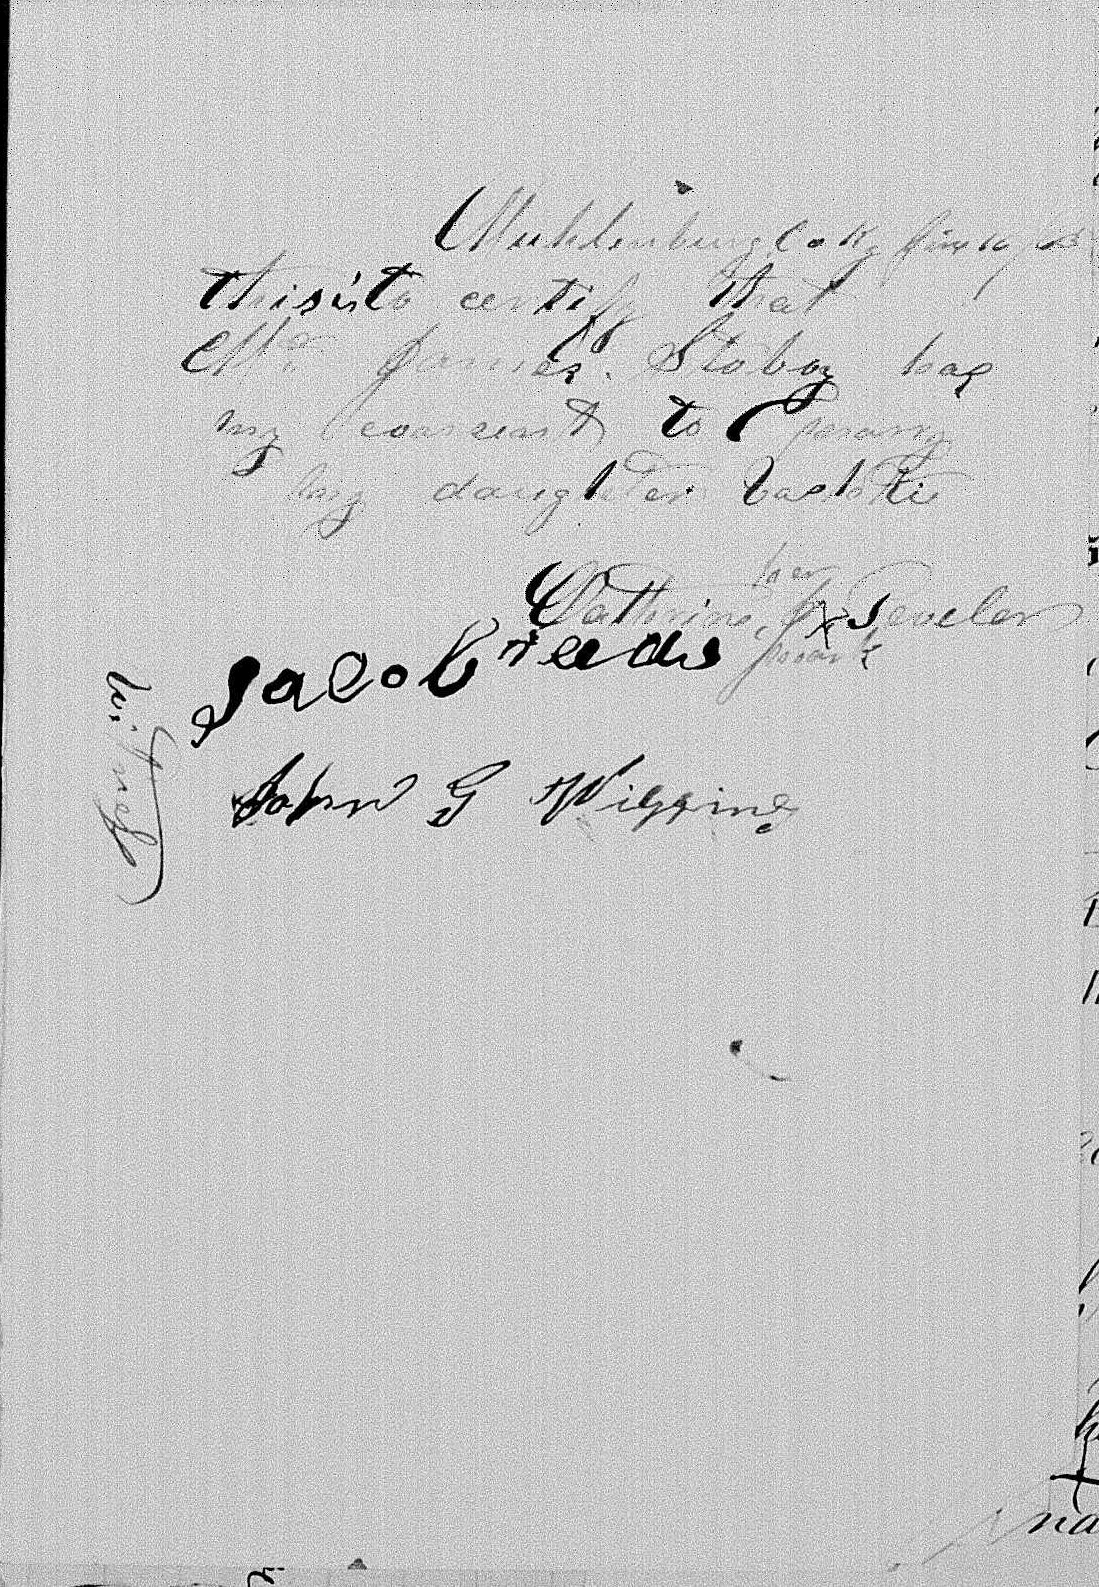 Muhlenburg Co Ky
this is to certify that
Mr James Stoby has
my concent to marry
my daughter
her
Cathrine X Seveler
mark
Jacob reeds
John G Wiggins
Witness